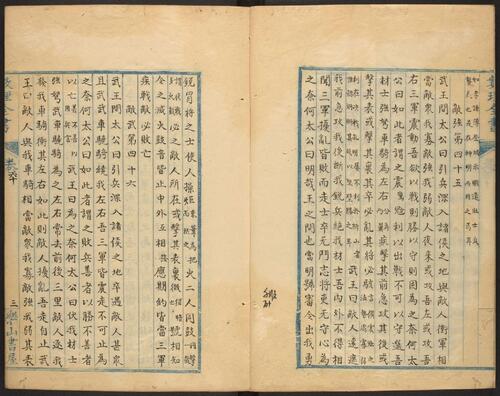 敵強第四十五
武王問太公曰引兵深入諸侯之地與敵人衝軍相
當敵衆我寡敵強我弱敵人夜來或攻吾左或攻吾
右三軍震動吾欲以戰則勝以守則固為之奈何太
公曰如此者謂之震寇利以出戰不可以守選吾
材士強弩車騎為之左右疾擊其前急攻其後或
擊其表或擊其裏其卒必亂其將必駭
武王曰敵人遠遮
我前急攻我後斷我銳兵絕我材士吾內外不得相
聞三軍擾亂皆敗而走士卒無鬥志將吏無守心為
之奈何太公曰明哉王之問也當明號審令出我勇
銳冒將之士使人操炬火二人同鼓
必知敵人所在或擊其表裏微號相知
令之滅火鼓音皆止中外相應期約皆當三軍
疾戰敵必敗亡
敵武第四十六
武王問太公曰引兵深入諸侯之地卒遇敵人甚衆
且武武車驍騎繞我左右吾三軍皆震走不可止為
之奈何太公曰如此者謂之敗兵善者以勝不善者
以亡武王曰為之奈何太公曰伏我材士
強弩武車驍騎為之左右常去前後三里敵人逐我
發我車騎衝其左右如此則敵擾亂吾走自止武
王曰敵人與我車騎相當敵衆我寡敵強我弱其來
三
樂山書屋